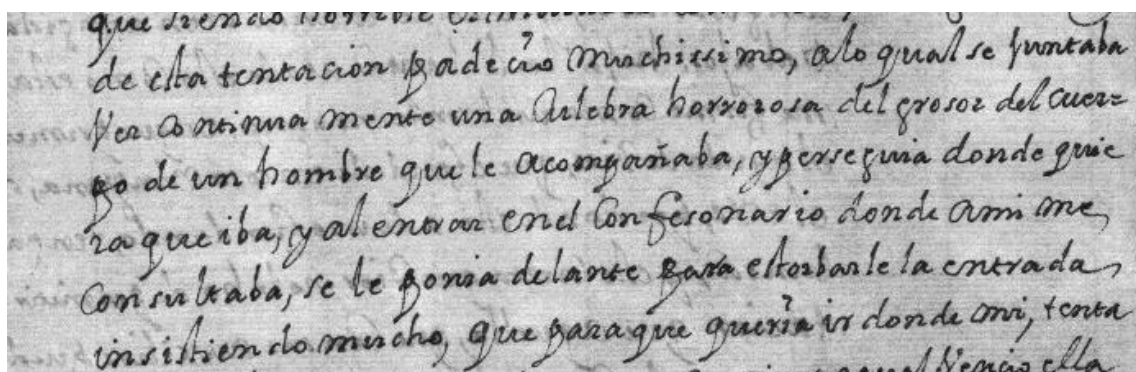 que siendo horrible
de esta tentacion padeciò muchissimo, alo qual se juntaba
ver continua mente una culebra horrorosa del grosor del cuer=
po de un hombre que le acompañaba, y perseguia donde quie
ra que iba, y al entrar en el confesonario donde ami me
consultaba, se le ponia delante para estorbarle la entrada,
insistiendo mucho, que para que querìa ir donde mi, tenta
vencio ella